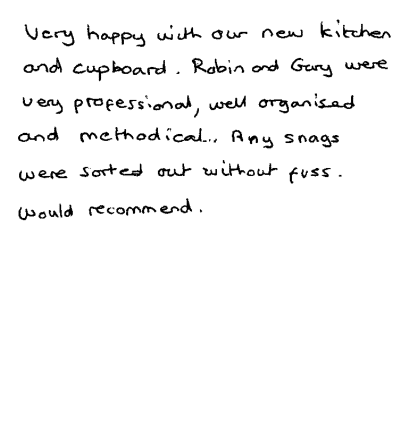 Very happy with our new kitchen
and cupboard. Robin and Gary were
very professional, well organised
and methodical... Any snags
were sorted out without fuss.
Would recommend.